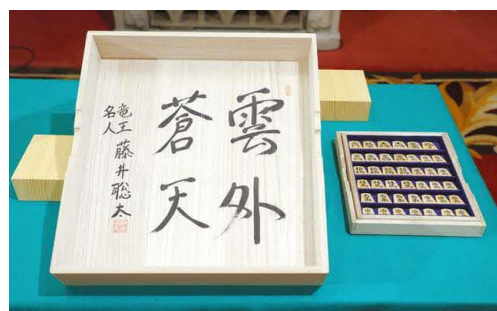 雲外
蒼天
竜王
名人
藤井聡太